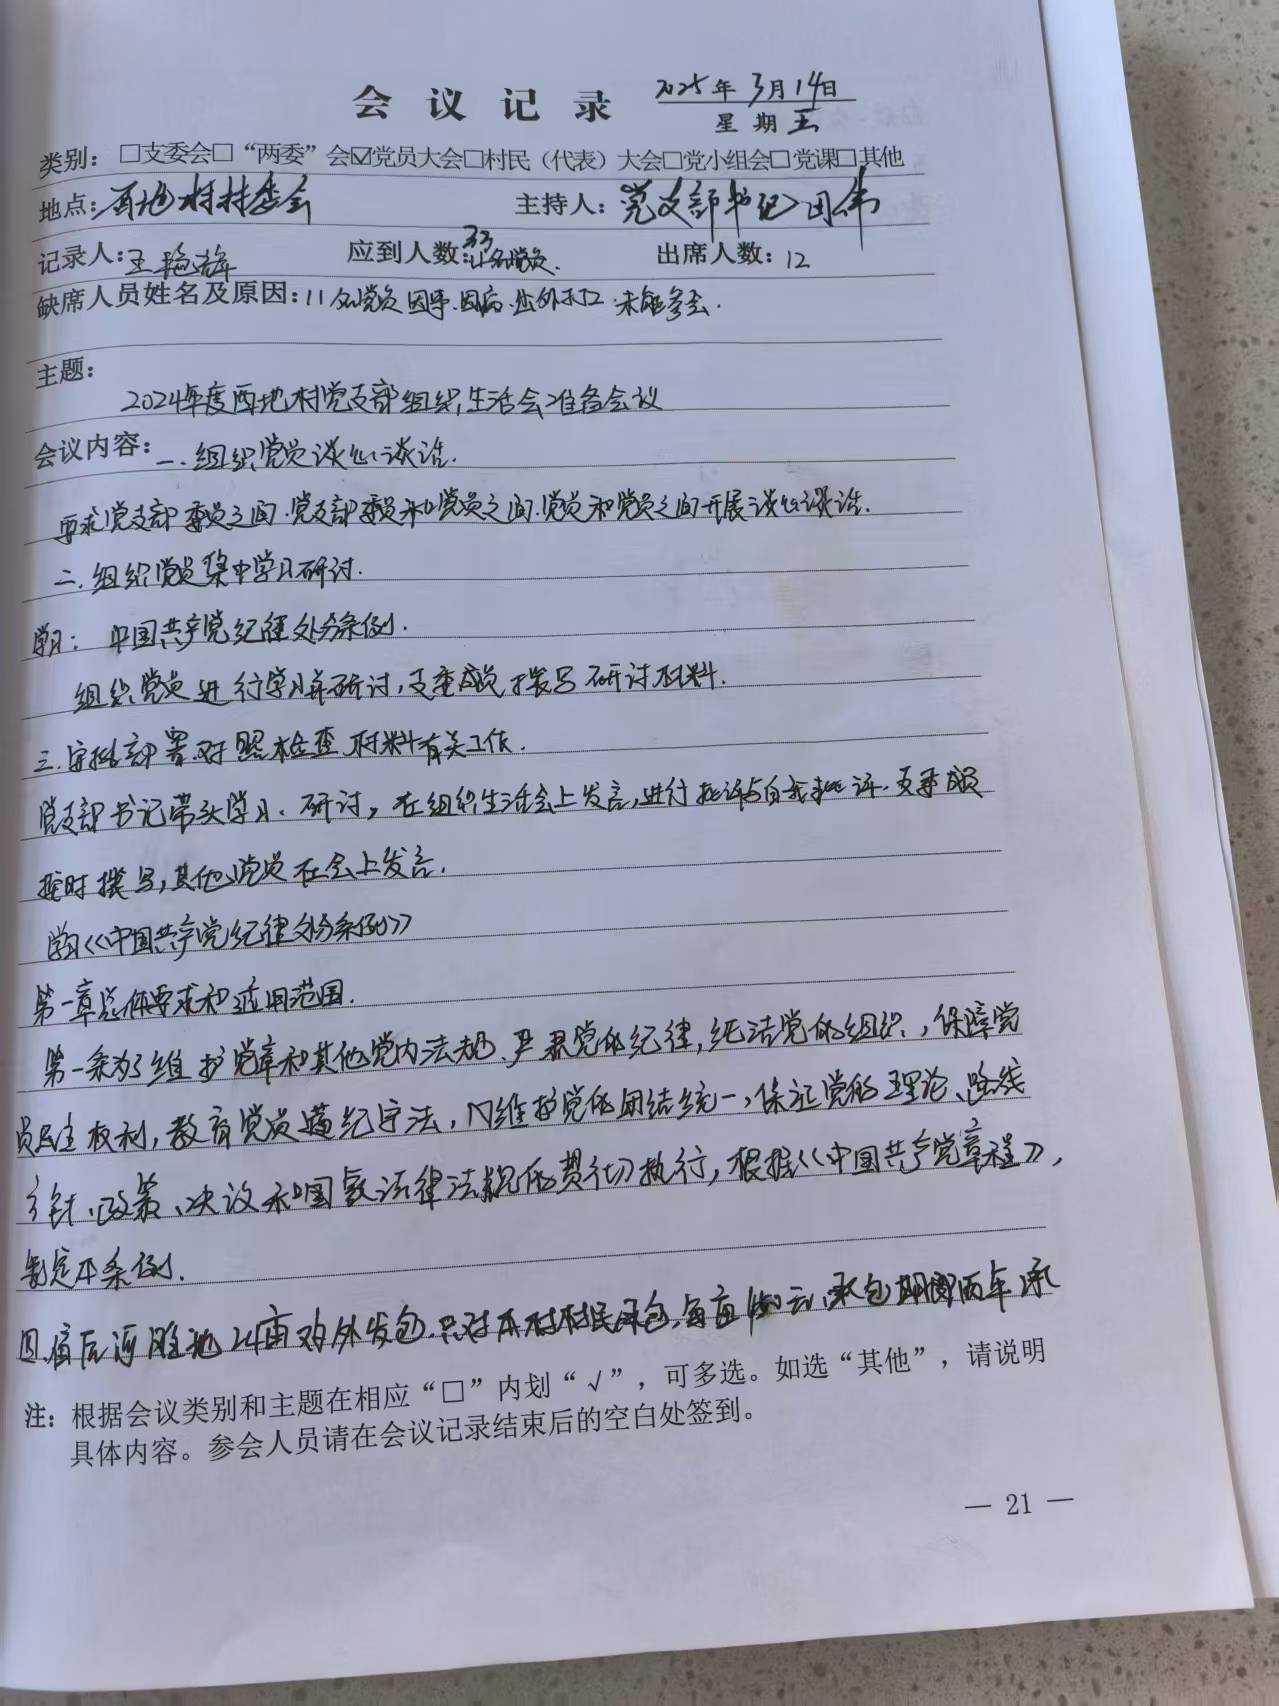 会议记录 2025年3月14日
星期五
类别：□支委会□“两委”会☑党员大会□村民（代表）大会□党小组会□党课□其他
地点：西地村村委会 主持人：党支部书记田伟
记录人：王艳辉 应到人数：23名党员. 出席人数：12
缺席人员姓名及原因：11名党员因事.因病.出外打工 未能参会.
主题：
2024年度西地村党支部组织生活会准备会议
会议内容：一.组织党员谈心谈话.
要求党支部委员之间.党支部委员和党员之间.党员和党员之间开展谈心谈话.
二.组织党员集中学习研讨.
学习：中国共产党纪律处分条例.
组织党员进行学习并研讨,支委成员撰写研讨材料.
三.安排部署对照检查材料有关工作.
党支部书记带头学习、研讨,在组织生活会上发言,进行批评与自我批评.支委成员
按时撰写,其他党员在会上发言.
学习《中国共产党纪律处分条例》
第一章总体要求和适用范围.
第一条为了维护党章和其他党内法规、严肃党的纪律,纯洁党的组织,保障党
员民主权利,教育党员遵纪守法,维护党的团结统一,保证党的理论、路线
方针、政策、决议和国家法律法规的贯彻执行,根据《中国共产党章程》,
制定本条例.
四.后河 地 亩对外发包.只对本村村民承包.每亩 元.承包期限两年 承
注：根据会议类别和主题在相应“□”内划“√”，可多选。如选“其他”，请说明
具体内容。参会人员请在会议记录结束后的空白处签到。
— 21 —